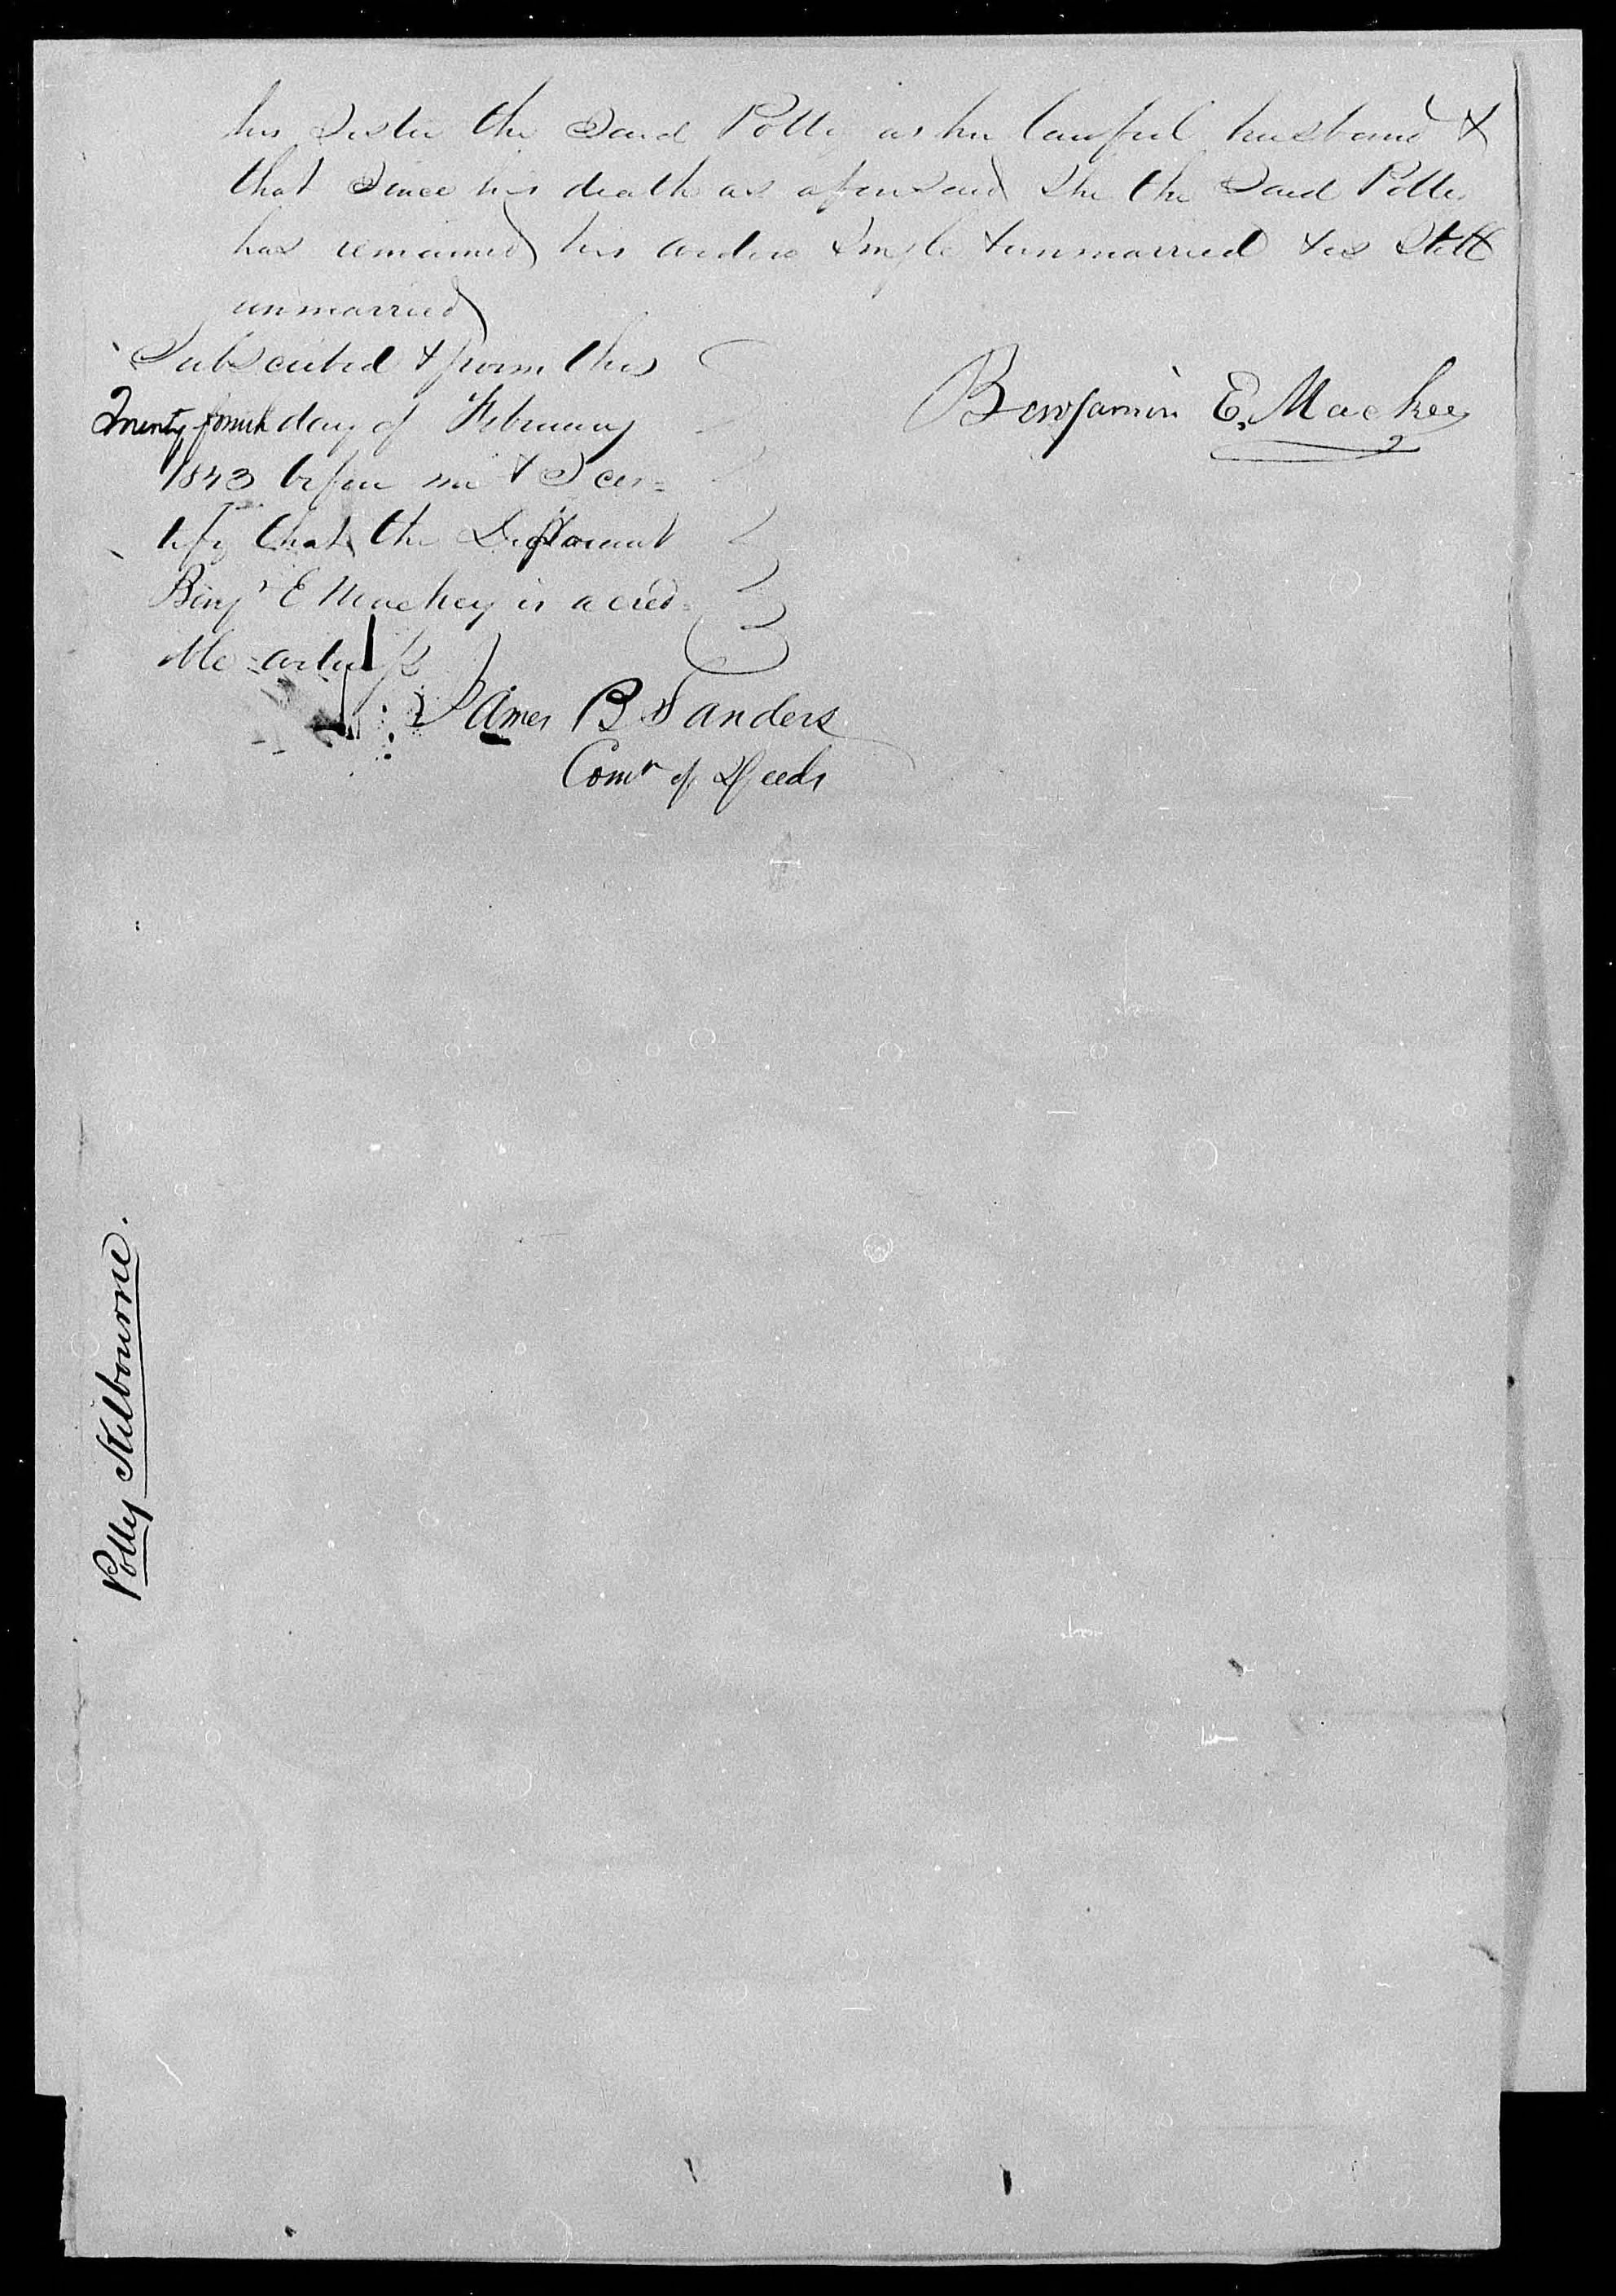 his Sister the Said Polly as her lawful husband &
that Since his death as aforesaid She the Said Polly
has remained his widow Single & unmarried & is Still
unmarried
Subscribed & sworn this
Twenty fourth day of February
1843 before me & I cer=
tify that the Deponent
Benjn E Mackey is a cred=
ible witness
Benjamin E. Mackey
James B Sanders
Comr of Deeds
Polly Kilbourne.